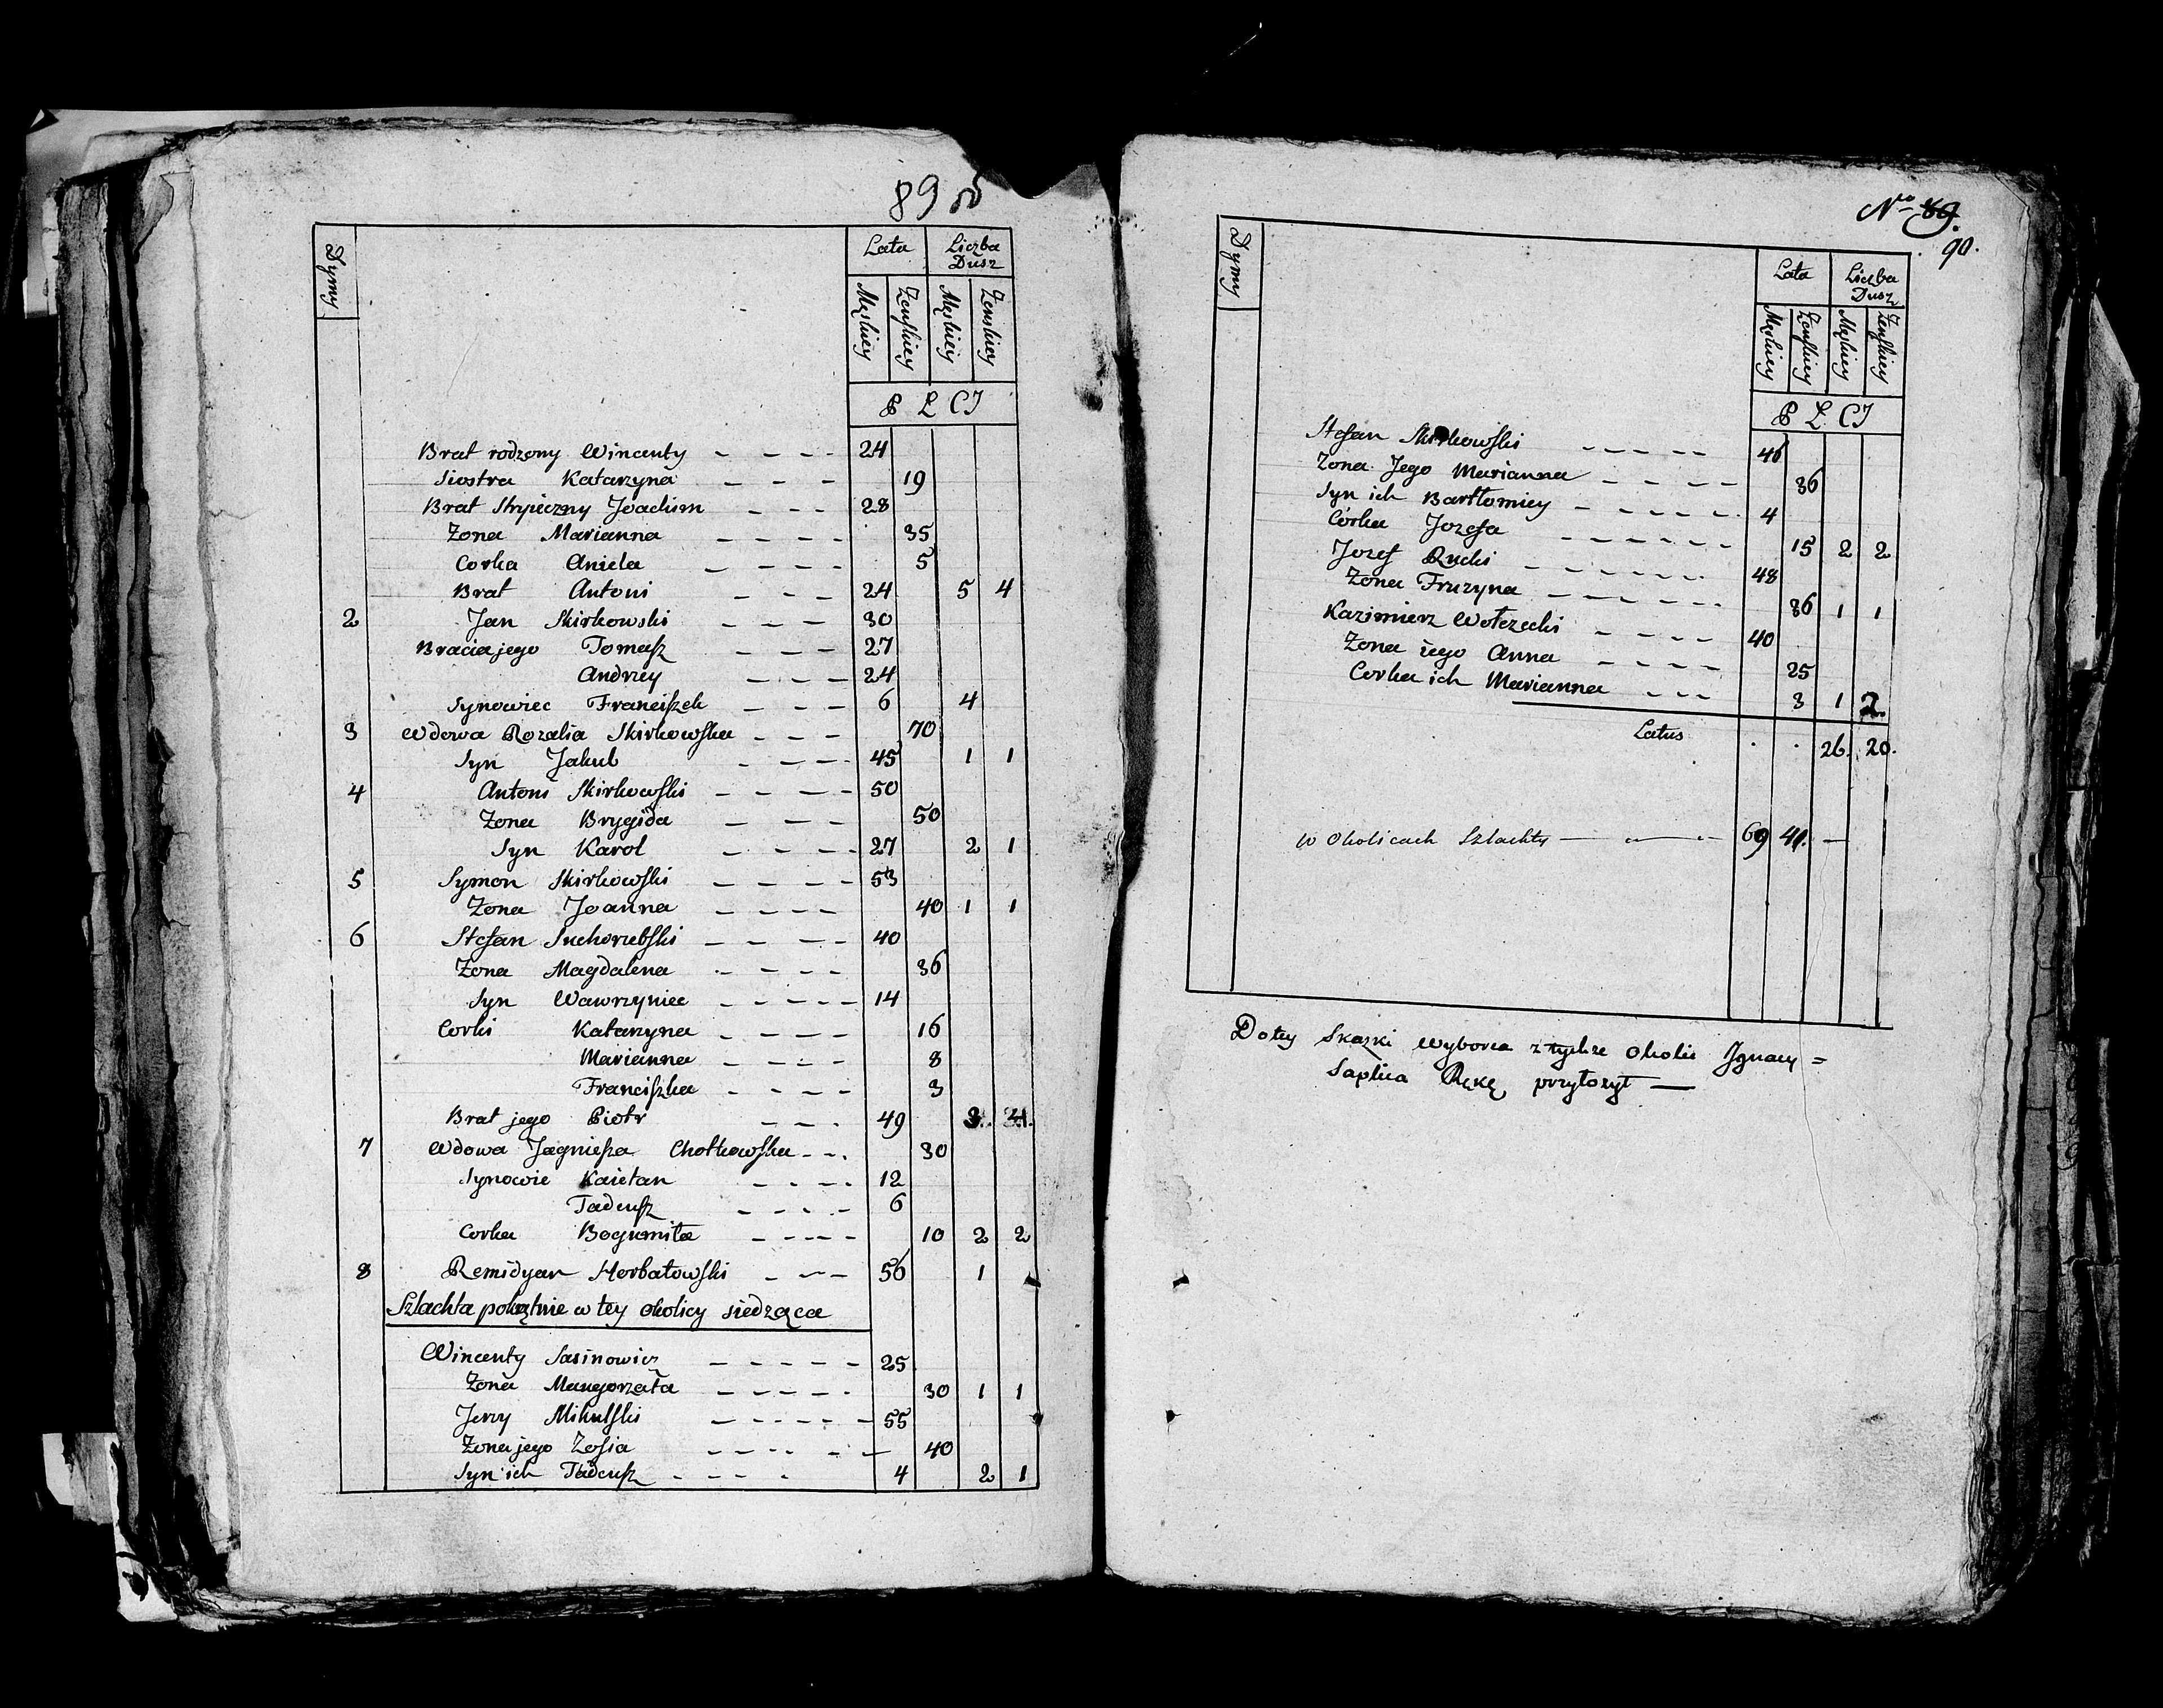 89 об
Dymy
Lata Liczba Dusz
Męskiey Zeńskiey Męskiey Zenskiey
P Ł CI
Brat rodzony Wincenty - - - - 24
Siostra Katarzyna - - - 19
Brat Stryieczny Joachim - - - 28
Zona Marianna - - - - 35
Corka Aniela - - - - 5
Brat Antoni - - - 24 5 4
2 Jan Skirkowski - - - 30
Bracia jego Tomasz - - - 27
Andrzey - - - 24
Synowiec Franciszek - - - 6 4
3 Wdowa Rozalia Skirkowska - - - 70
Syn Jakub - - - - 45 1 1
4 Antoni Skirkowski - - - - 50
Zona Brygida - - - 50
Syn Karol - - - - 27 2 1
5 Symon Skirkowski - - - - 53
Zona Joanna - - - - 40 1 1
6 Stefan Suchorebski - - - - 40
Zona Magdalena - - - - 36
Syn Wawrzyniec - - - - - 14
Corki Katarzyna - - - - 16
Marianna - - - - 8
Franciszka - - - - 3
Brat jego Piotr - - - 49 3. 4.
7 Wdowa Jagniesza Chotkowska - - . 30
Synowie Kaietan - - - - 12
Tadeusz - - - - 6
Corka Bogumiła - - - - 10 2 2
8 Remidyan Horbatowski - - - 56 1
Szlachta pokątnie w tey okolicy siedząca
Wincenty Sasinowicz - - - - - 25
Zona Maugorzata - - - - - 30 1 1
Jerzy Mikulski - - - - - - 55
Zona jego Zofia - - - - - - 40
Syn ich Tadeusz - - - - 4 2 1
No 89.
90.
Dymy
Lata Liczba Dusz
Męskiey Zeńskiey Męskiey Zeńskiey
P Ł CI
Stefan Skirkowski - - - - - 46
Zona Jego Marianna - - - - - 36
Syn ich Bartłomiey - - - - - 4
Córka Jozefa - - - - - - 15 2 2
Jozef Rucki - - - - - - 48
Zona Fruzyna - - - - - - 36 1 1
Kazimierz Wołczecki - - - - 40
Zona iego Anna - - - - 25
Corka ich Marianna - - - 3 1 2.
Latus . . 26. 20.
w Okolicach Szlachty — — — 69 41. —
Do tey Skazki wyborca z tychze Okolic Jgnacy =
Saplica Rękę przyłożył —